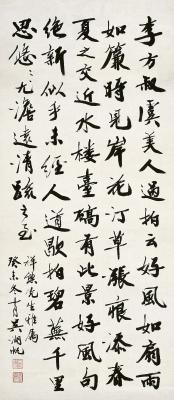 李方叔虞美人過拍云好風如扇雨
如簾時見岸花汀草漲痕添春
夏之交近水樓臺碻有此景好風句
絶新似乎未經人道歇拍碧蕪千里
思悠〻尤澹遠清疏之至
祥熊先生雅屬
癸未冬十月吳湖帆